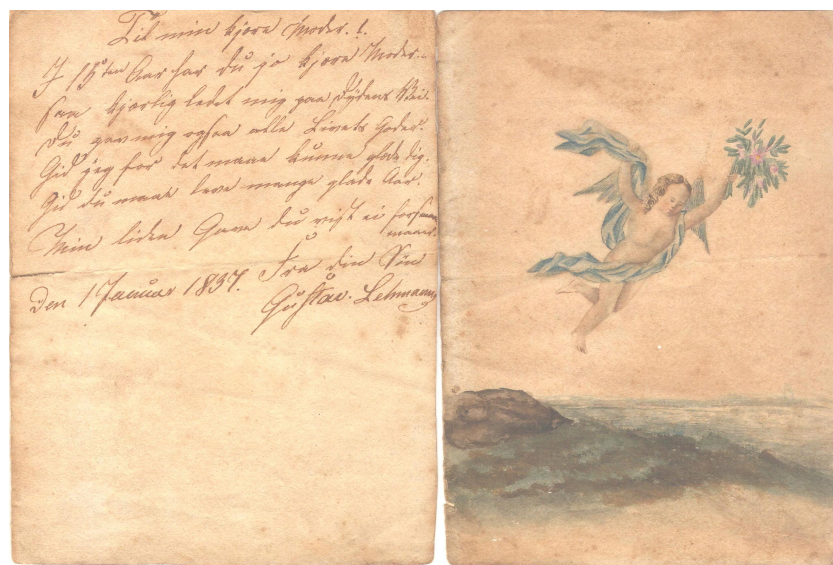 Til min kjære Moder.!.
I 15ten Aar har du jo kjære Moder.
saa kjærlig ledet mig paa Dydens Vei.
Du gav mig ogsaa alle Livets Goder.
Gid jeg for det maae kunne glæde dig.
Gid du maae leve mange glade Aar.
Min liden Gave du vist ei forsmaaer.
Fra din Sön
Den 1 Januar 1837. Gustav. Lehmann